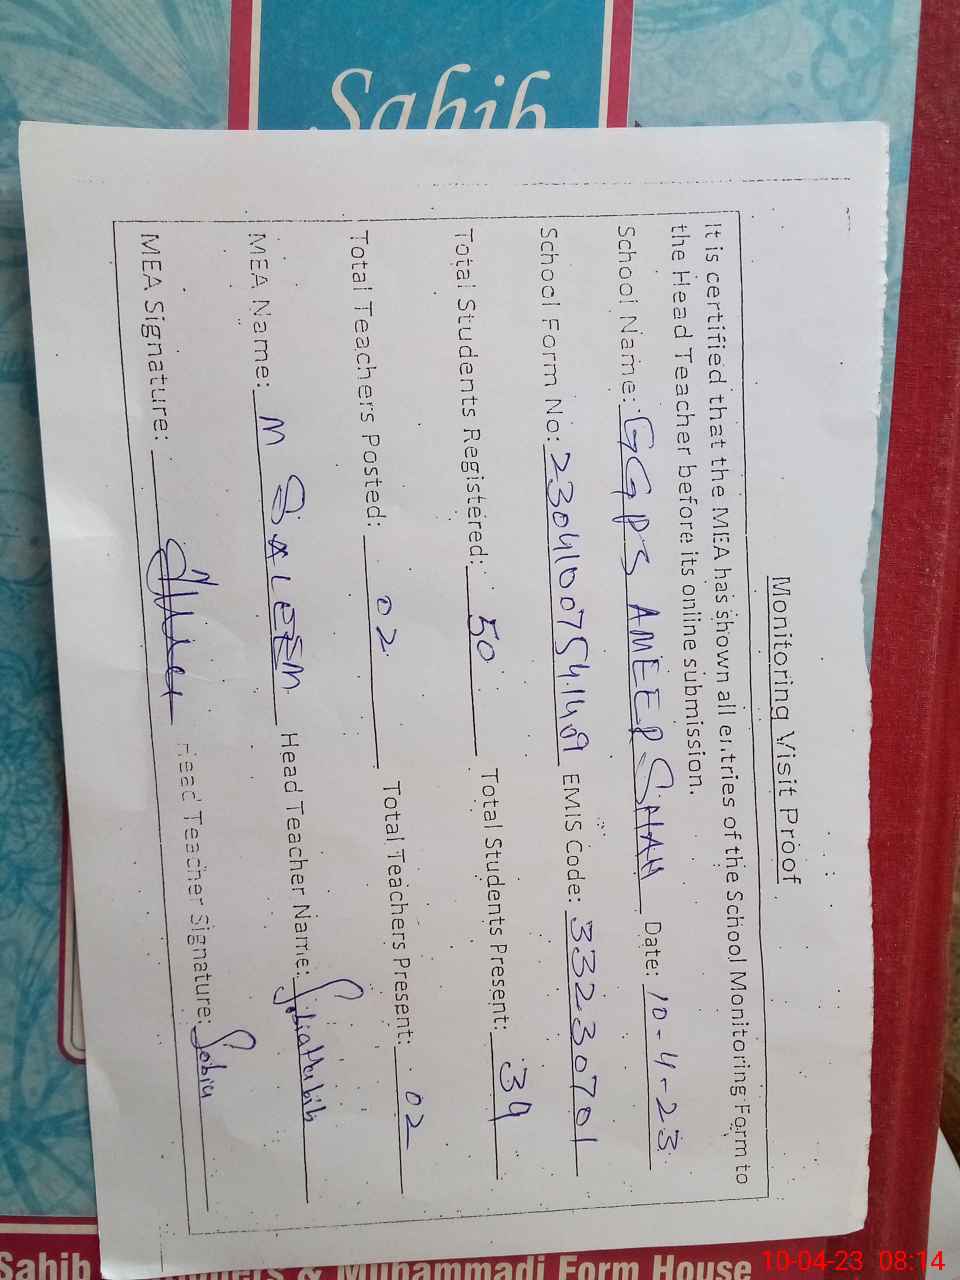 Sahib
Monitoring Visit Proof
It is certified that the MEA has shown all entries of the School Monitoring Form to
the Head Teacher before its online submission.
School Name: GGPS AMEER SHAH Date: 10-4-23
School Form No: 2304100754149 EMIS Code: 33230701
Total Students Registered: 50 Total Students Present: 34
Total Teachers Posted: 02 Total Teachers Present: 02
MEA Name: M SALEEM Head Teacher Name: Sobia Habib
MEA Signature: Head Teacher Signature: Sobia
Sahib & Muhammadi Form House
10-04-23 08:14